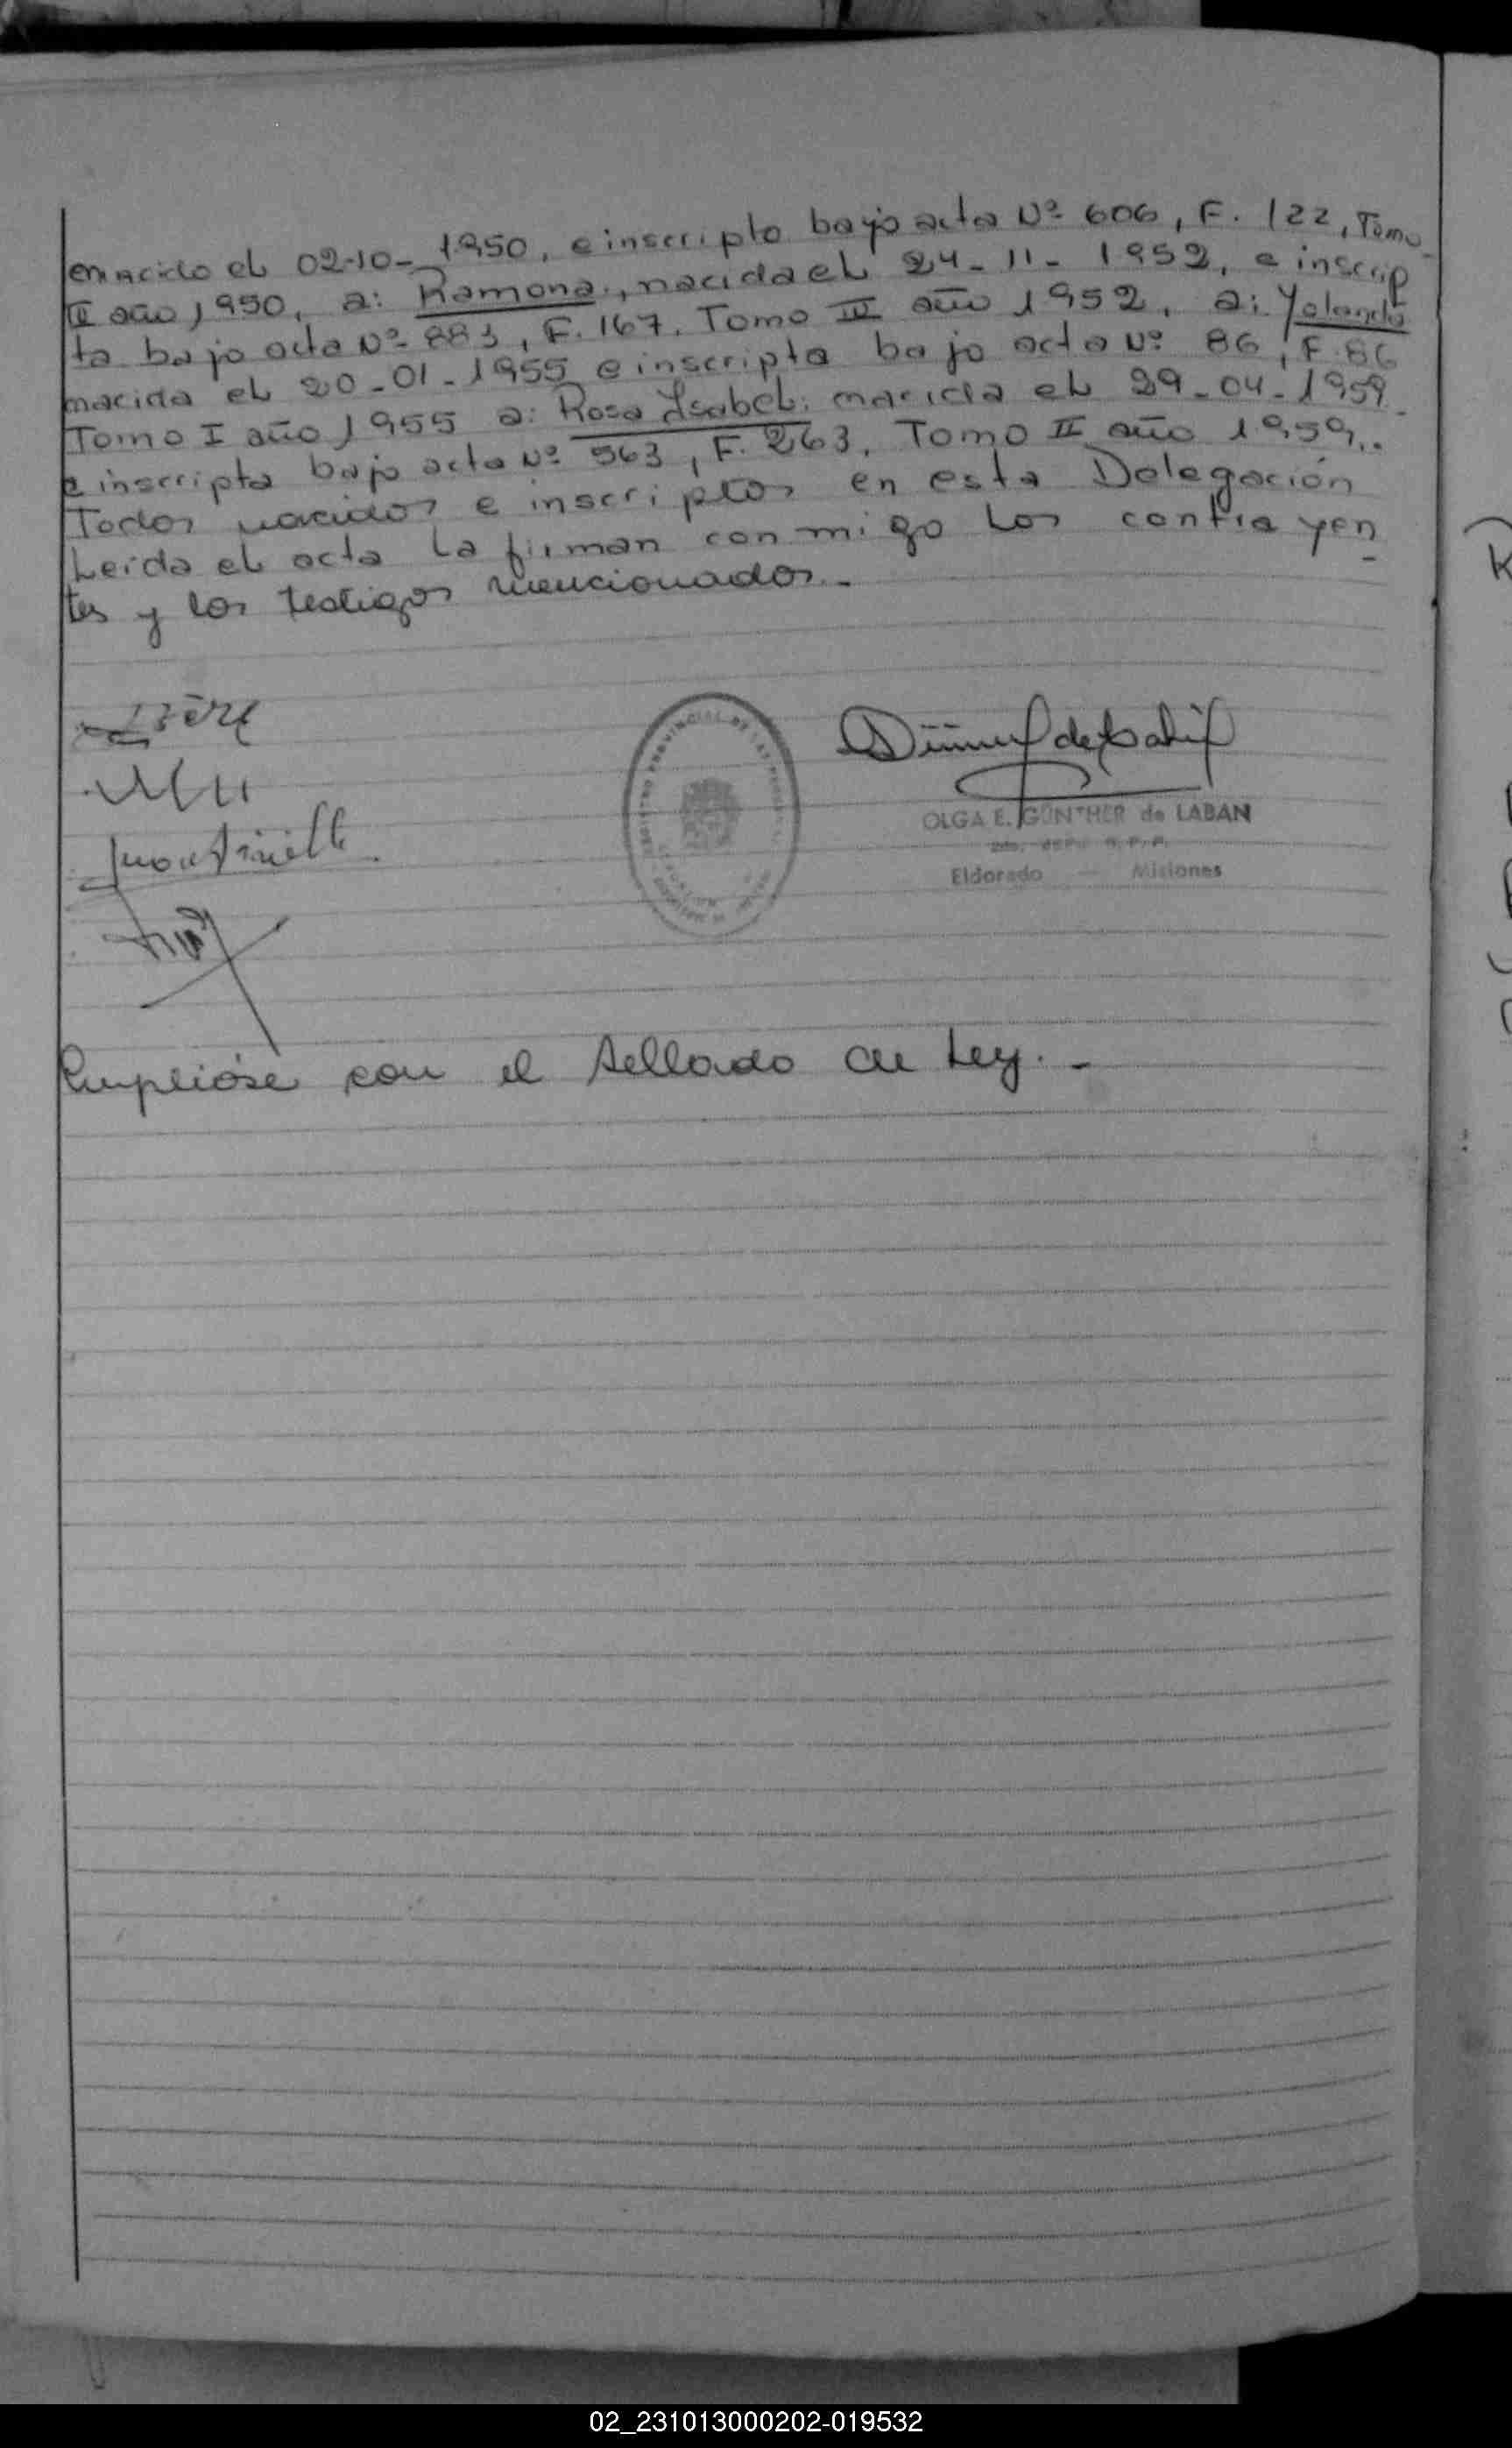 nacido el 02-10-1950, e inscripto bajo acta Nº 606, F. 122, Tomo
II año 1950, a: Ramona, nacida el 24-11-1952, e inscrip
ta bajo acta Nº 883, F. 167. Tomo III año 1952, a: Yolanda
nacida el 20-01-1955 e inscripta bajo acta Nº 86, F. 86
Tomo I año 1955 a: Rosa Isabel: nacida el 29-04-1959
e inscripta bajo acta Nº 563, F. 263, Tomo II año 1959.
Todos nacidos e inscriptos en esta Delegación
Leida el acta la firman conmigo los contrayen
tes y los testigos mencionados.-
OLGA E. GÜNTHER de LABAN
Eldorado — Misiones
Cumplióse con el sellado de Ley.-
02_231013000202-019532